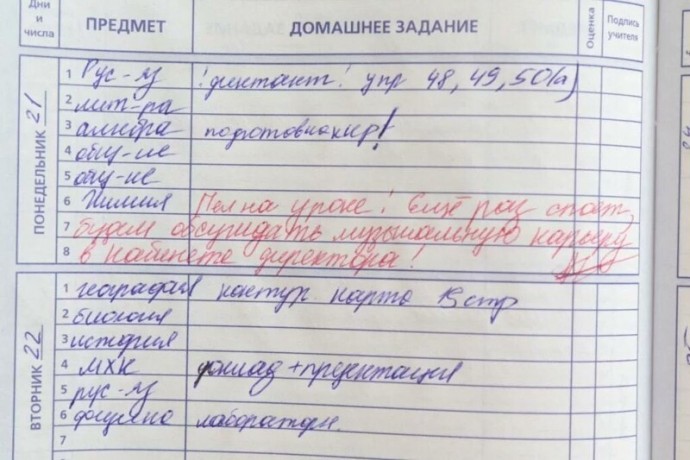 Дни и числа ПРЕДМЕТ ДОМАШНЕЕ ЗАДАНИЕ Оценка Подпись учителя
ПОНЕДЕЛЬНИК 21
1 Рус-яз !диктант! упр 48, 49, 50(а)
2 лит-ра
3 алгебра
4 общ-ие
5 общ-ие
6 Химия Пел на уроке! Ещё раз споёт,
7 будем обсуждать музыкальную карьеру
8 в кабинете директора!
ВТОРНИК 22
1 география контур. карта 8 стр
2 биология
3 история
4 МХК доклад+презентация
5 рус-яз
6 физика лаборатор.
7